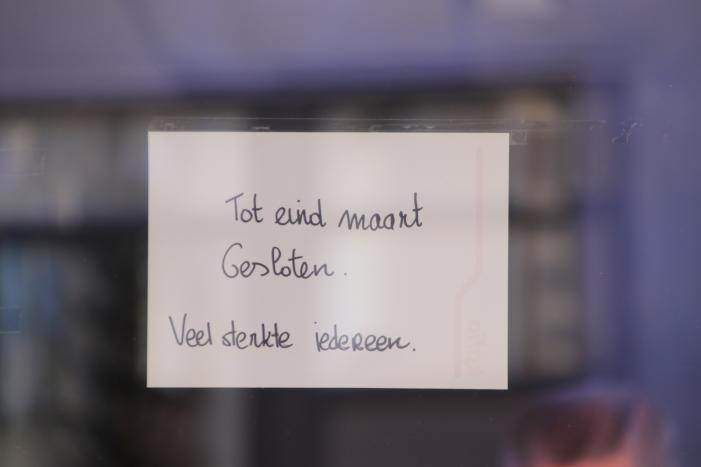 Tot eind maart
Gesloten.
Veel sterkte iedereen.